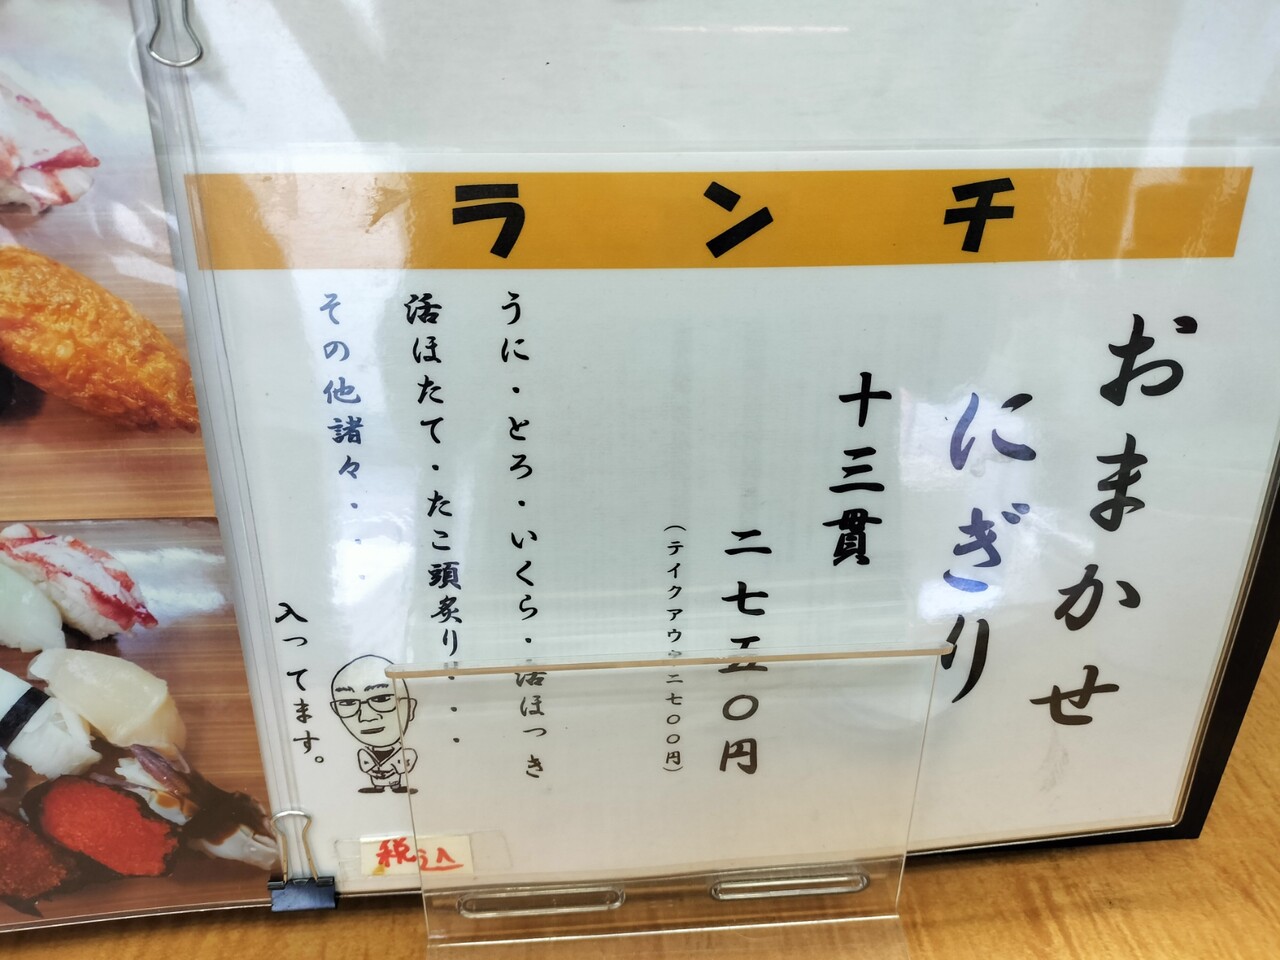 ランチ
おまかせ
にぎり
十三貫
二七五〇円
(テイクアウト二七〇〇円)
うに・とろ・いくら・活ほっき
活ほたて・たこ頭炙り・・・
その他諸々・・・
入ってます。
税込